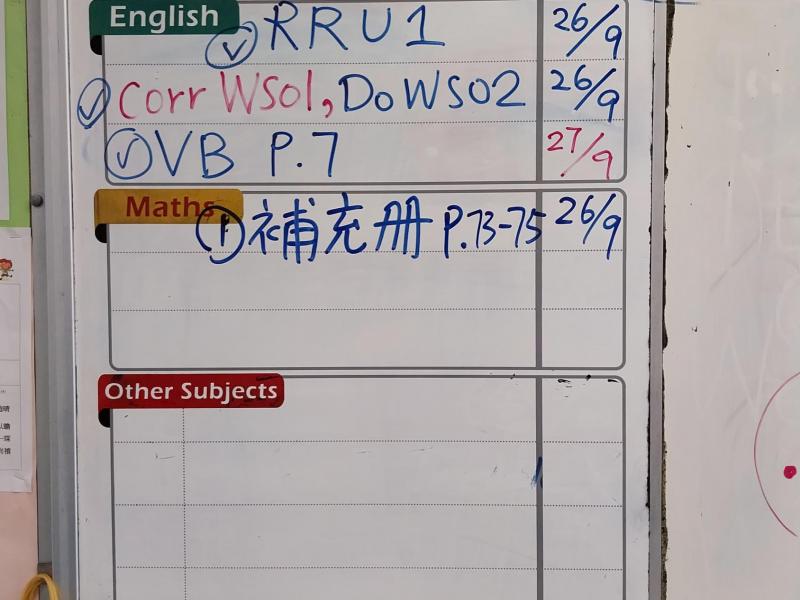 English
RRU1 26/9
Corr WS01, Do WS02 26/9
VB P.7 27/9
Maths
① 補充册 P.73-75 26/9
Other Subjects